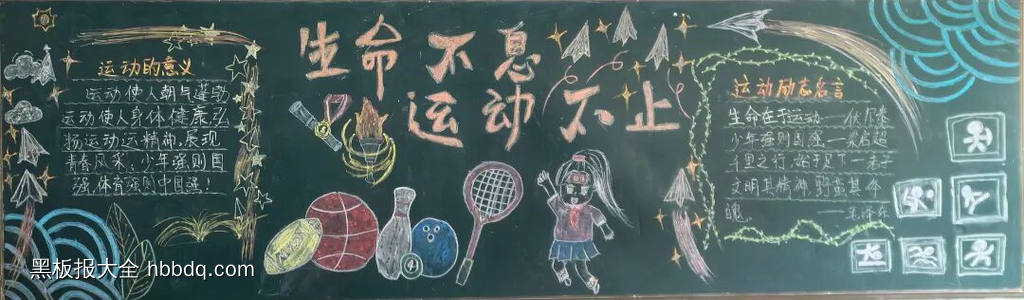 生命不息
运动不止
运动的意义
运动使人朝气蓬勃
运动使人身体健康弘
扬运动运精神,展现
青春风采,少年强则国
强,体育强则中国强!
运动励志名言
生命在于运动—伏尔泰
少年强则国强—梁启超
千里之行,始于足下—老子
文明其精神 野蛮其体
魄 ——毛泽东
4
黑板报大全 hbbdq.com